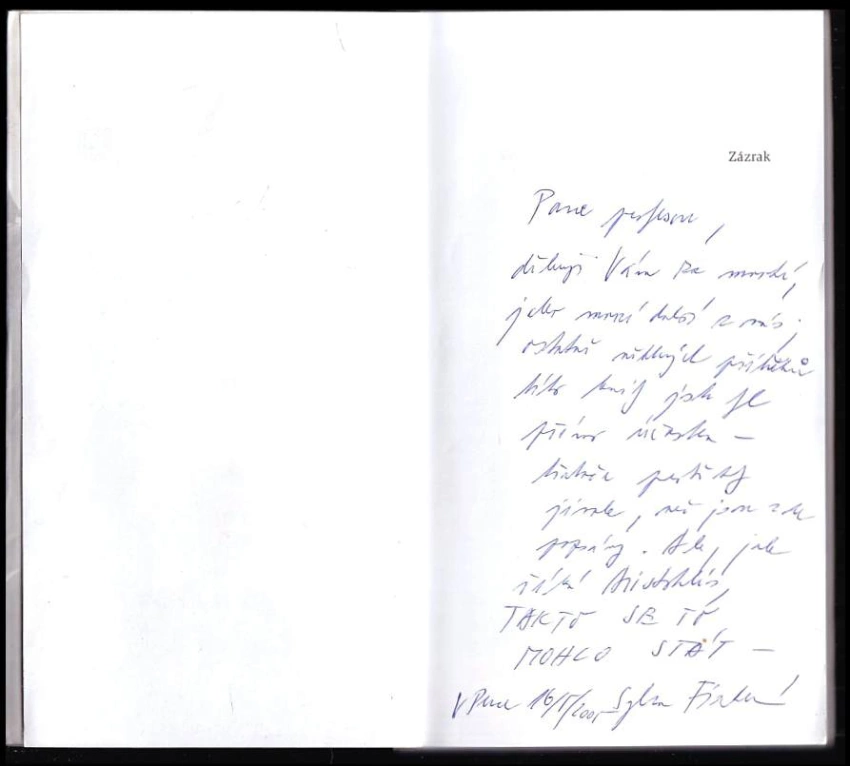 Zázrak
Pane profesore,
děkuji Vám za mnohé,
jako mnozí další z nás;
ostatně některých příběhů
této knihy jste se
přímo účastnil —
jinak, než jsou zde
popsány. Ale, jak
říká Aristoteles,
TAKTO SE TO
MOHLO STÁT —
V Praze 16/5/2005 Sylva Fischerová